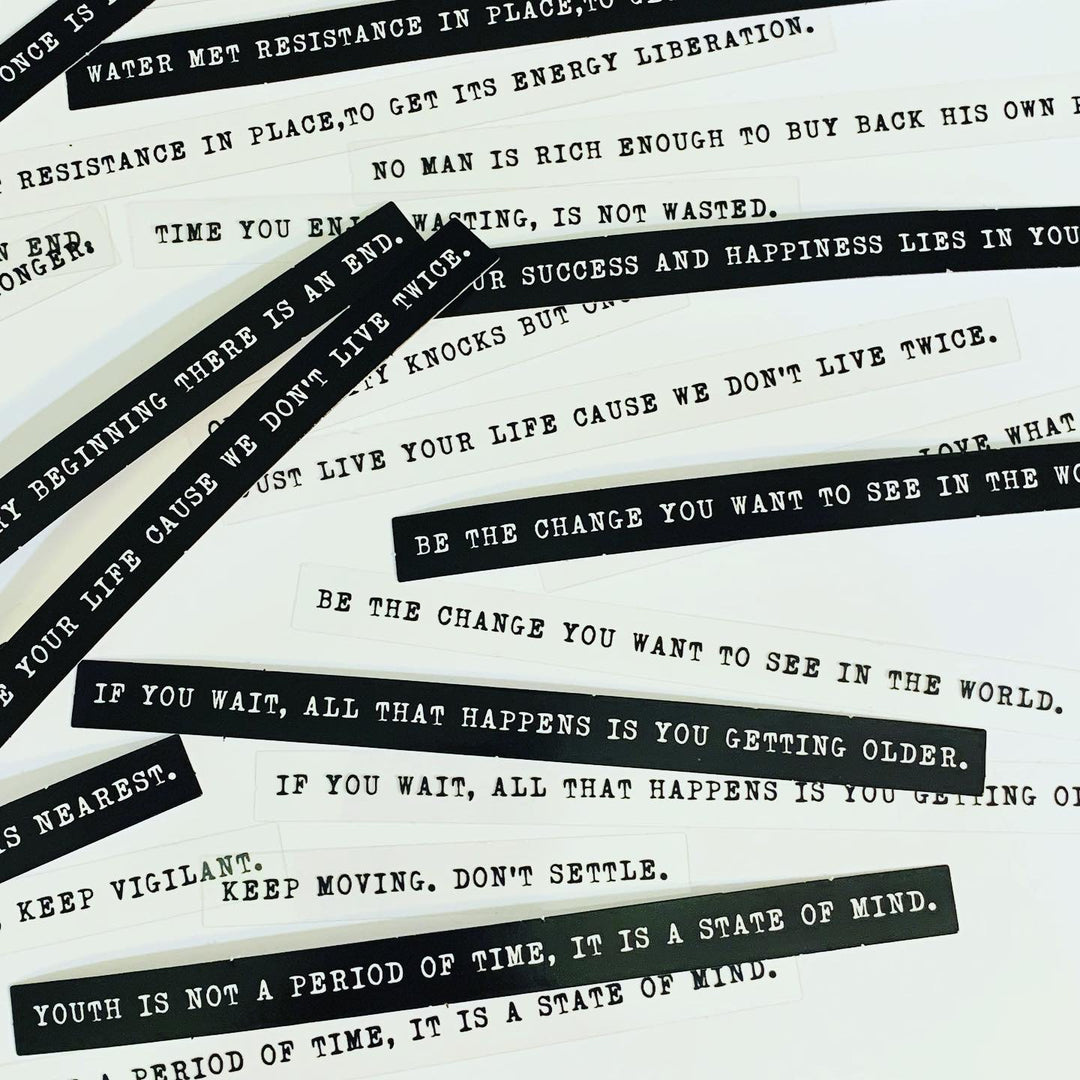 ONCE IS
WATER MET RESISTANCE IN PLACE,TO
RESISTANCE IN PLACE,TO GET ITS ENERGY LIBERATION.
NO MAN IS RICH ENOUGH TO BUY BACK HIS OWN
END.
ONGER.
TIME YOU WASTING, IS NOT WASTED.
UR SUCCESS AND HAPPINESS LIES IN YOU
RY BEGINNING THERE IS AN END.
E YOUR LIFE CAUSE WE DON'T LIVE TWICE.
TY KNOCKS BUT
UST LIVE YOUR LIFE CAUSE WE DON'T LIVE TWICE.
LOVE WHAT
BE THE CHANGE YOU WANT TO SEE IN THE WO
BE THE CHANGE YOU WANT TO SEE IN THE WORLD.
IF YOU WAIT, ALL THAT HAPPENS IS YOU GETTING OLDER.
IF YOU WAIT, ALL THAT HAPPENS IS YOU GETTING OL
IS NEAREST.
KEEP VIGILANT.
KEEP MOVING. DON'T SETTLE.
YOUTH IS NOT A PERIOD OF TIME, IT IS A STATE OF MIND.
A PERIOD OF TIME, IT IS A STATE OF MIND.